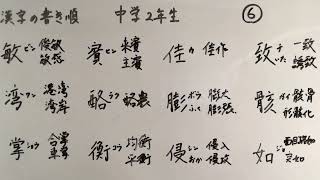 漢字の書き順 中学2年生 ⑥
敏 ビン 俊敏 敏感
賓 ヒン 来賓 主賓
佳 カ 佳作
致 チ いた 一致 誘致
湾 ワン 港湾 湾岸
酪 ラク 酪農
膨 ボウ ふく 膨大 膨張
骸 ガイ 骸骨 形骸化
掌 ショウ 合掌 車掌
衡 コウ 均衡 平衡
侵 シン おか 侵入 侵攻
如 ジョ 面目躍如 突如